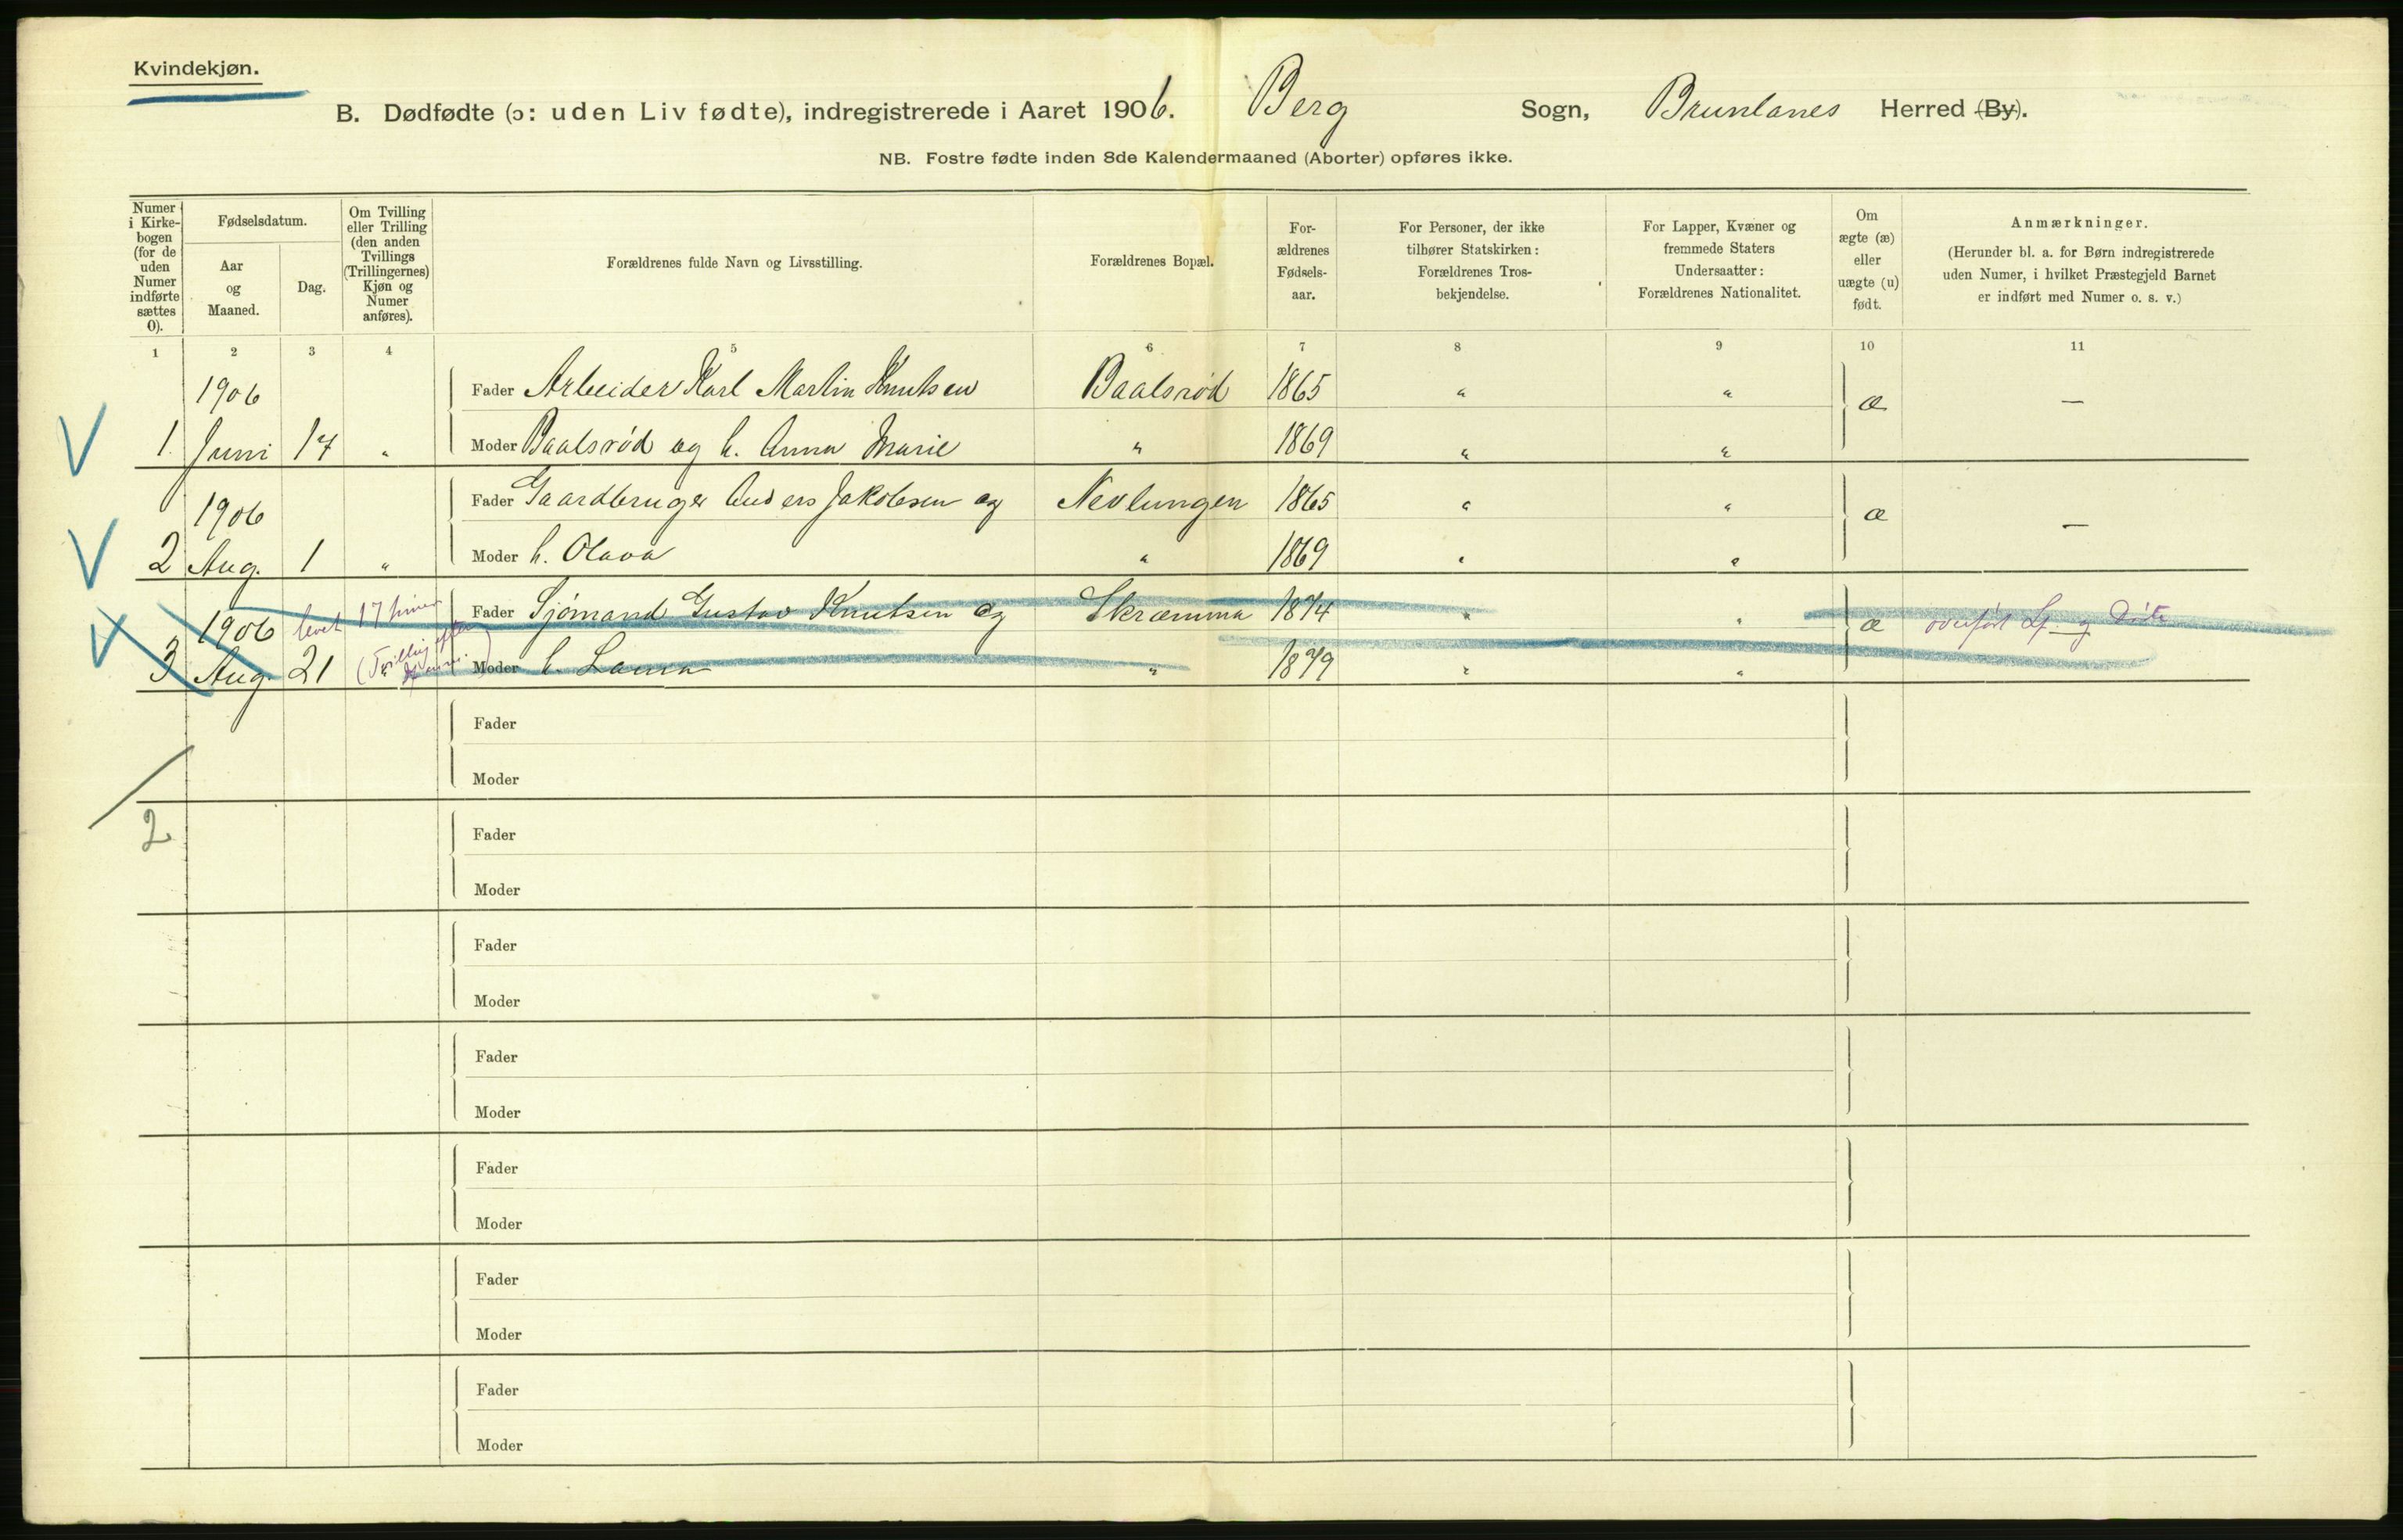 Kvindekjøn.
B. Dødfødte (ɔ: uden Liv fødte), indregistrerede i Aaret 1906. Berg Sogn, Brunlanes Herred (By).
NB. Fostre fødte inden 8de Kalendermaaned (Aborter) opføres ikke.
Numer i Kirkebogen (for de uden Numer indførte sættes 0).
Fødselsdatum.
Aar og Maaned.
Dag.
Om Tvilling eller Trilling (den anden Tvillings (Trillingernes) Kjøn og Numer anføres).
Forældrenes fulde Navn og Livsstilling.
Forældrenes Bopæl.
Forældrenes Fødselsaar.
For Personer, der ikke tilhører Statskirken: Forældrenes Trosbekjendelse.
For Lapper, Kvæner og fremmede Staters Undersaatter: Forældrenes Nationalitet.
Om ægte (æ) eller uægte (u) født.
Anmærkninger.
(Herunder bl. a. for Børn indregistrerede uden Numer, i hvilket Præstegjeld Barnet er indført med Numer o. s. v.)
1 2 3 4 5 6 7 8 9 10 11
1906 Fader Arbeider Karl Martin Knutsen Baalsrød 1865 " " æ —
1. Juni 17 " Moder Baalsrød og h. Anna Marie " 1869 " "
1906 Fader Gaardbruger Anders Jakobsen og Nevlungen 1865 " " æ —
2 Aug. 1 " Moder h. Olava " 1869 " "
1906 levet 17 timer Fader Sjømand Gustav Knutsen og Skræmma 1874 " " æ overført Lf. og Døde
3 Aug. 21 (Tvilling Moder h. Laura " 1879 " "
Fader
Moder
2
Fader
Moder
Fader
Moder
Fader
Moder
Fader
Moder
Fader
Moder
Fader
Moder